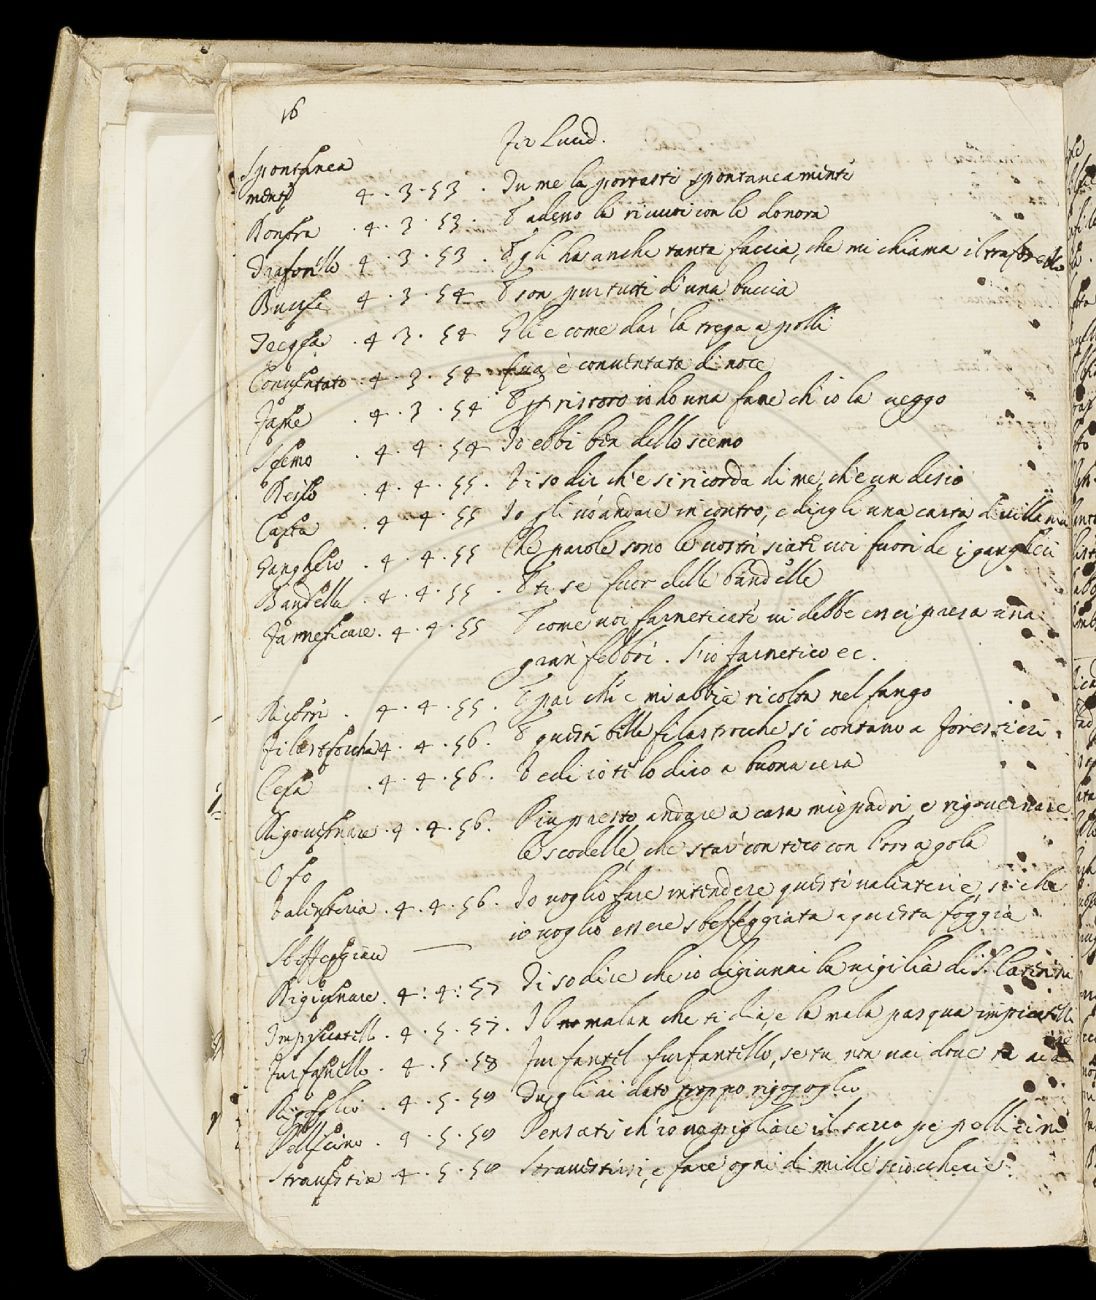 16
Fir Lucid.
Spontanea
mente 4. 3. 53. Tu me la portasti spontaneamente
4. 3. 53. E adesso la ricuori con le donora
4. 3. 53. Egli ha anche tanta faccia, che mi chiama il
Buccia 4. 3. 54 E son pur tutti d'una buccia
4. 3. 54 Gli è come dar la trega a polli
Conventato. 4. 3. 54 è conventata di noce
Fame. 4. 3. 54 E ristoro io ho una fame ch'io la veggo
Scemo. 4. 4. 54 Io ebbi ben dello scemo
4. 4. 55. Vi so dir ch'e si ricorda di me, ch'è un desio
Carta. 4. 4. 55 Io gli vo andare incontro, e dirgli una carta di villania
Ganghero. 4. 4. 55 Che parole sono le vostre siate voi fuori de i gangheri
Bandella. 4. 4. 55. E ti se fuor delle bandelle
Farneticare. 4. 4. 55 E come voi farneticate vi debbe esserci presa una
gran febbre. S'io farnetico ec.
Ricorre. 4. 4. 55. E par ch'e mi abbia ricolta nel fango
Filastrocche 4. 4. 56. E queste belle filastrocche si contano a forestieri
Cera. 4. 4. 56. Vedi io ti lo dico a buona cera
Rigovernare. 4. 4. 56. Più presto andare a casa mio padre, e rigovernare
le scodelle, che star con teco con l'oro a gola
Oro
Valenteria. 4. 4. 56. Io voglio fare intendere queste valenterie, se che
io voglio essere sbeffeggiata a questa foggia
Sbeffeggiare
Digiunare. 4. 4. 57 Ti so dire che io digiunai la vigilia di S. Caterina
4. 5. 57. Il malan che ti dia, e la mala pasqua
Furfantello. 4. 5. 58 furfantello, se tu non vai dove
Rigoglio. 4. 5. 58 Tu gli ai dato troppo rigoglio
Pellicino. 4. 5. 58 Pensati ch'io vo pigliare il sacco pe pellicini
Stravestire 4. 5. 58 Stravestirsi, e fare ogni dì mille sciocherie